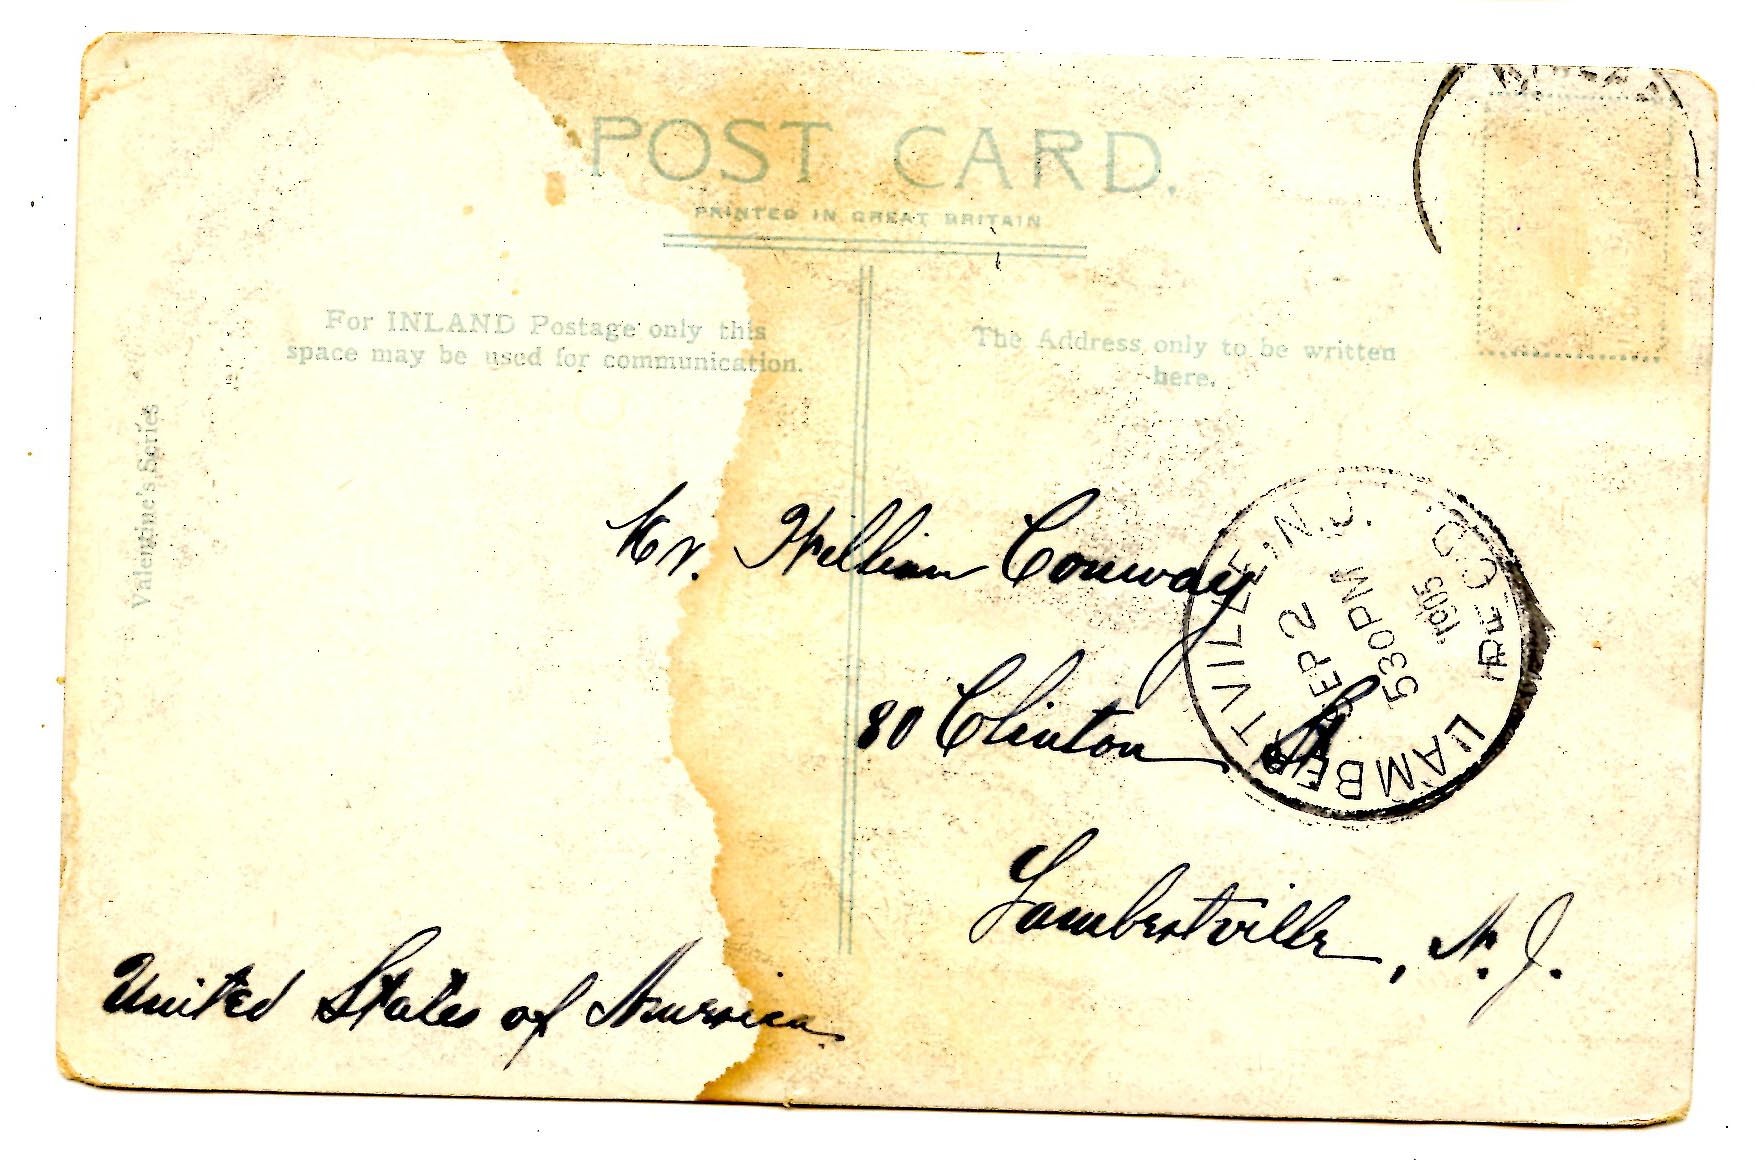 POST CARD.
PRINTED IN GREAT BRITAIN
For INLAND Postage only this
space may be used for communication.
The Address only to be written
here.
Valentine's Series
Mr. William Conway
80 Clinton St
Lambertville, N. J.
United States of America
LAMBERTVILLE, N.J.
SEP 2
530PM
1905
REC'D.